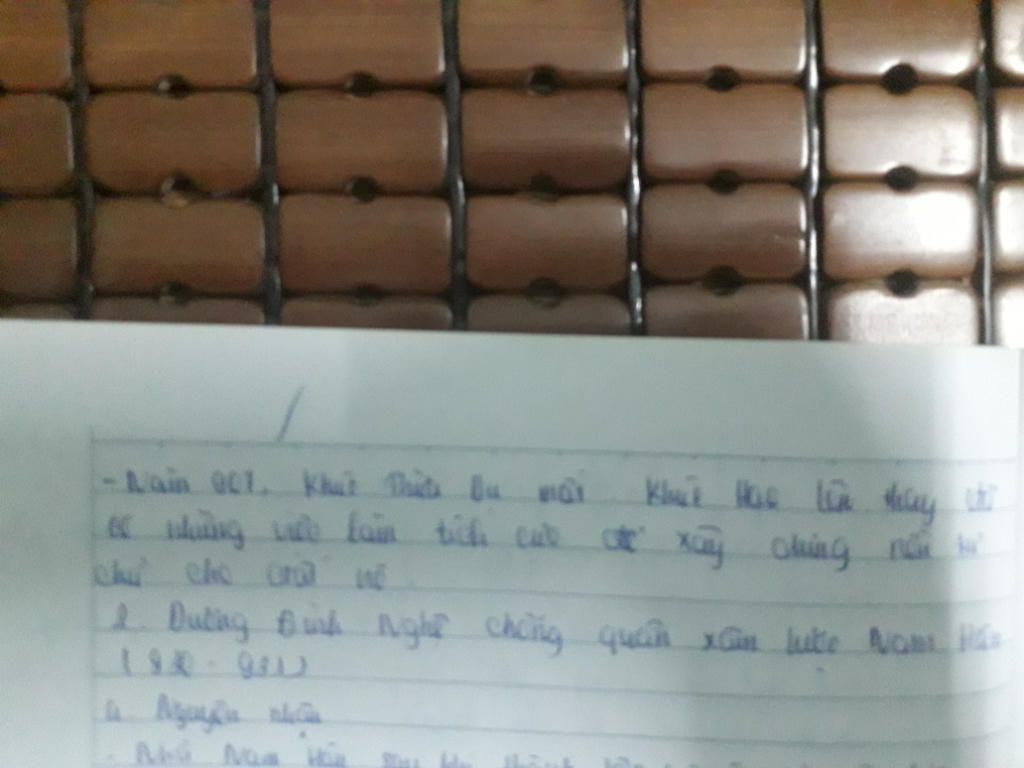 - Năm 907, Khúc Thừa Dụ mất. Khúc Hạo lên thay đã
có những việc làm tích cực để xây dựng nền tự
chủ cho đất
2. Dương Đình Nghệ chống quân xâm lược Nam Hán
a. Nguyên nhân
- Nhà Nam Hán sau khi thành